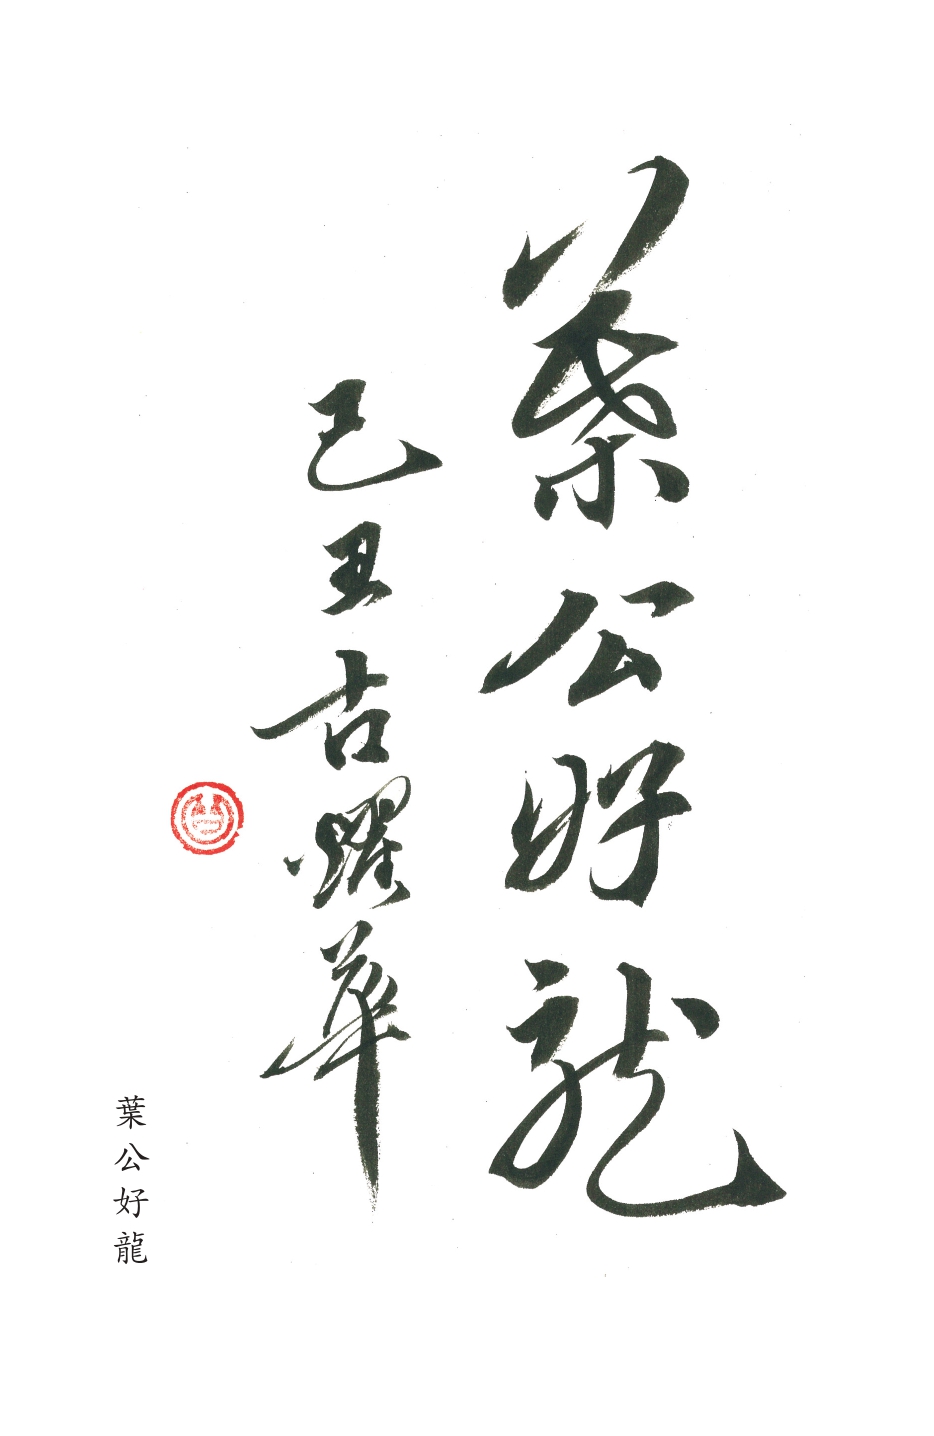 葉公好龍
己丑古耀華
葉公好龍